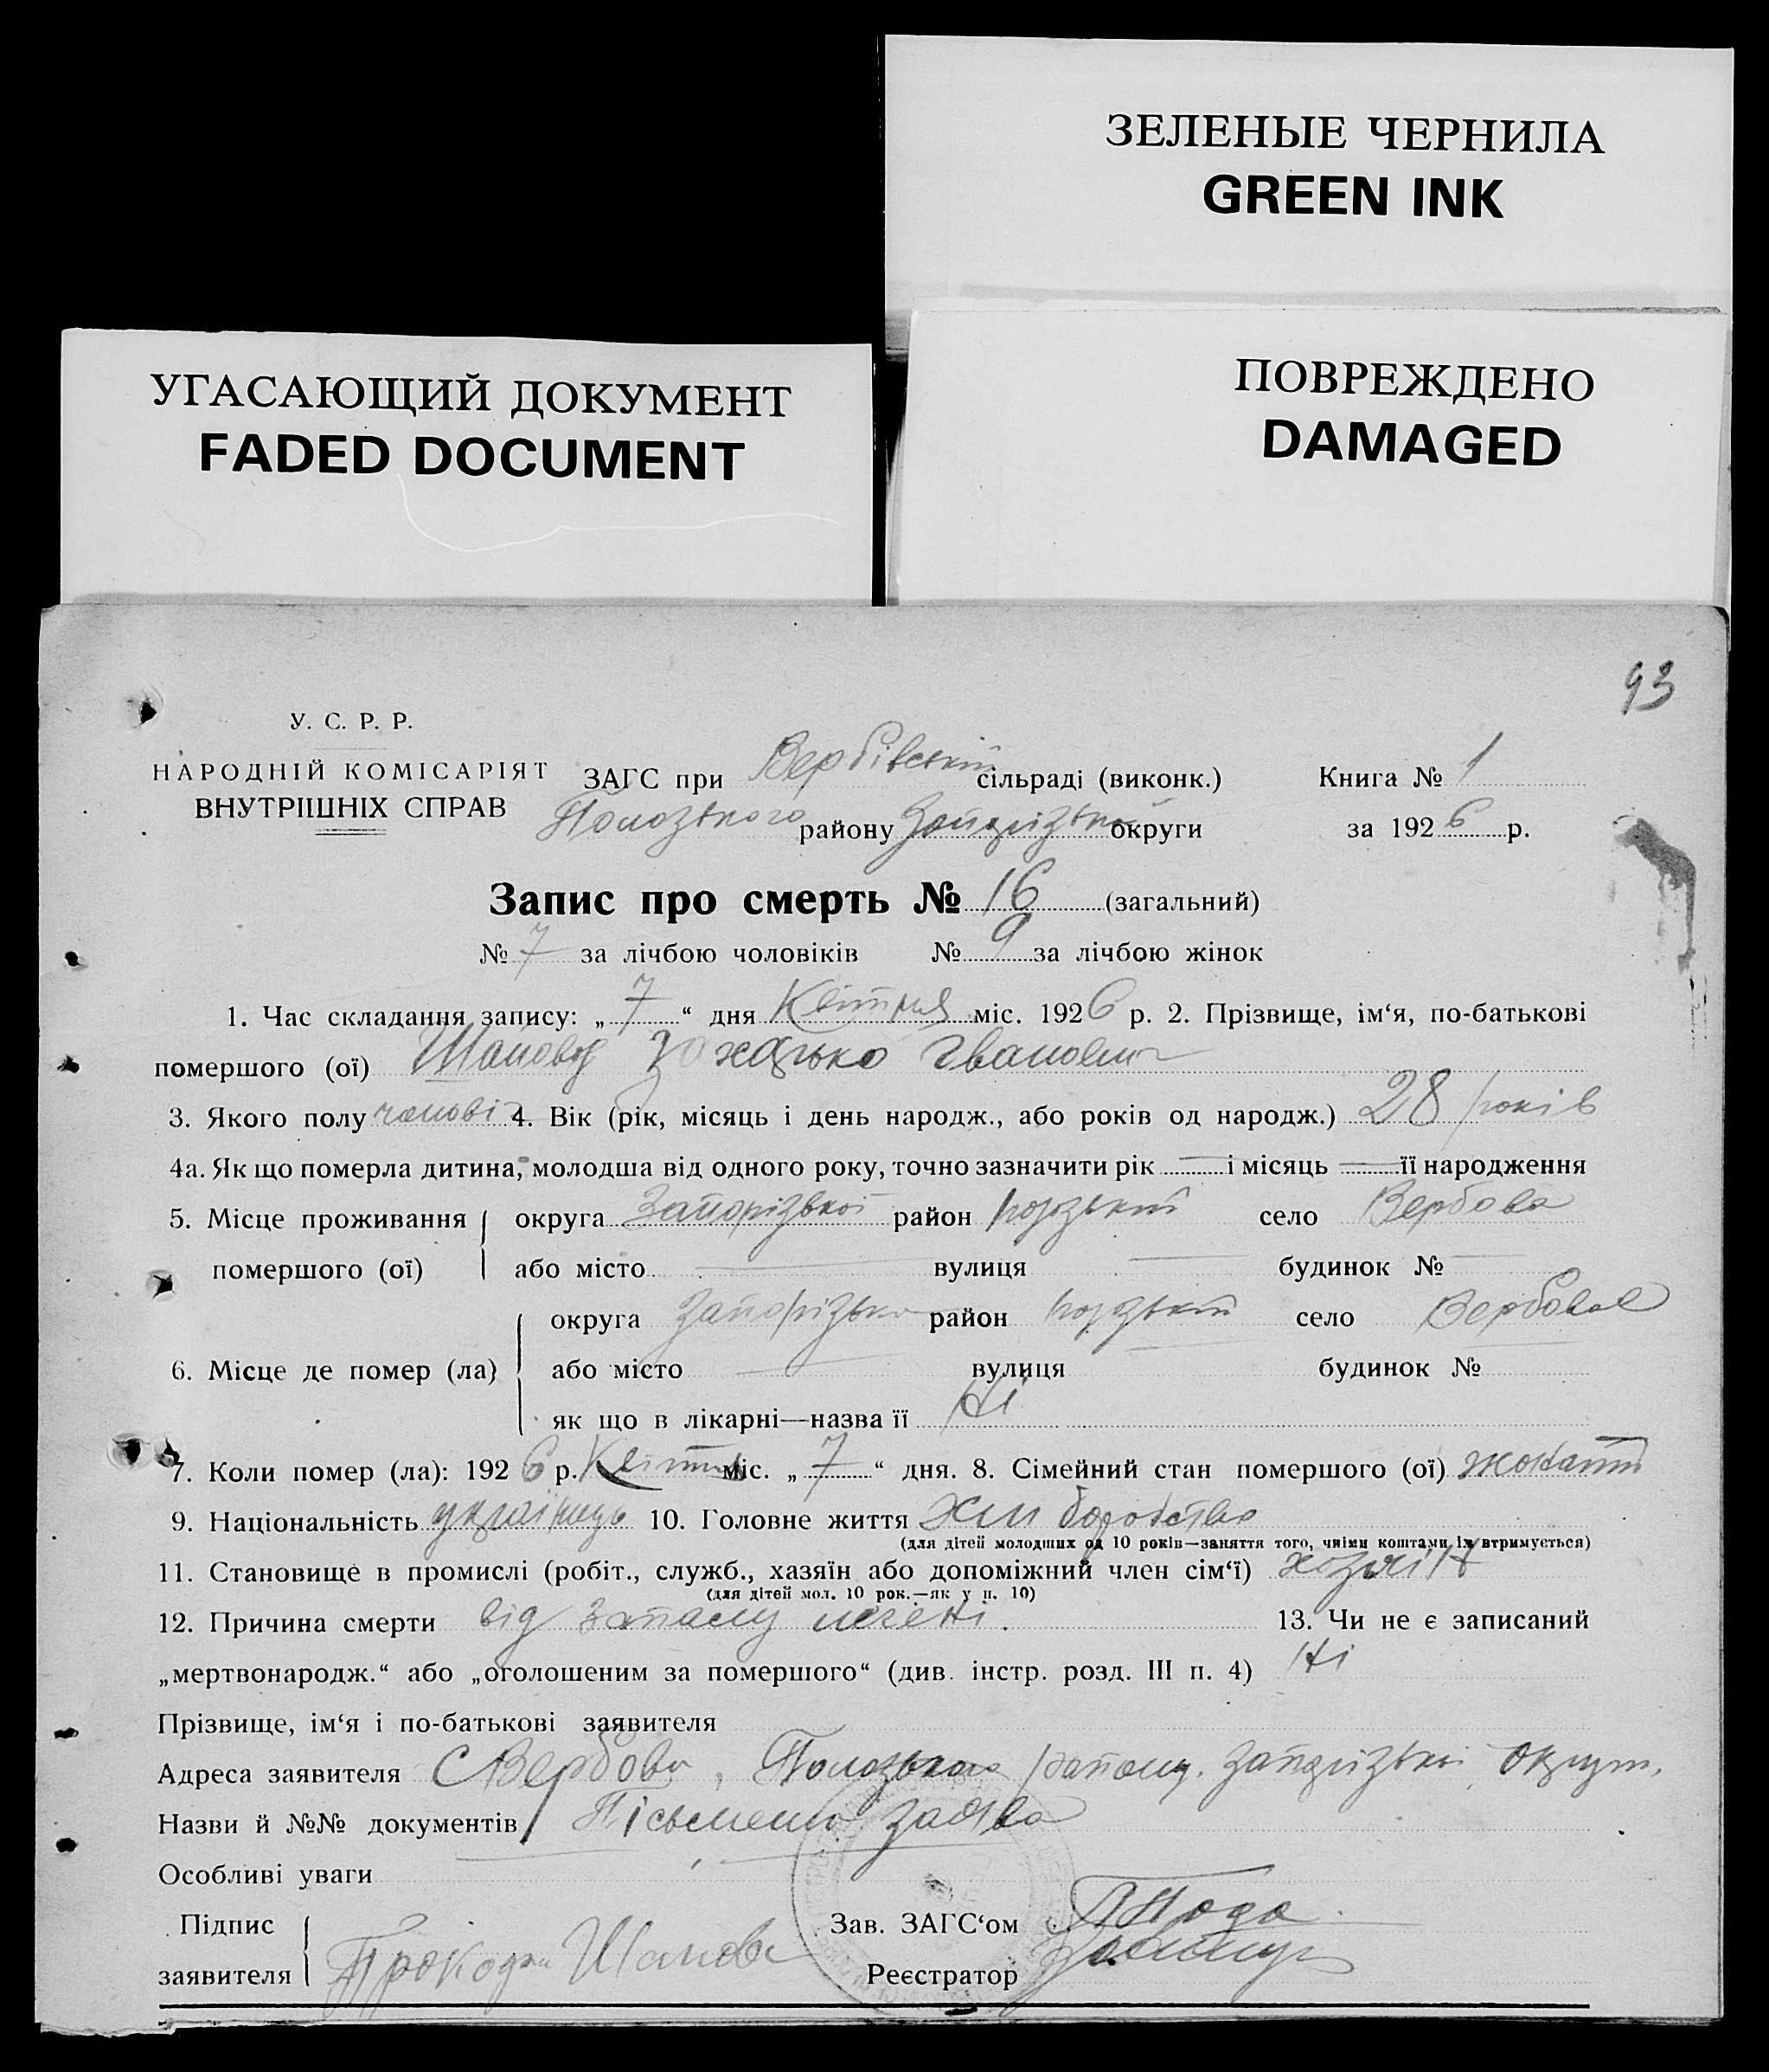 ЗЕЛЕНЫЕ ЧЕРНИЛА
GREEN INK
УГАСАЮЩИЙ ДОКУМЕНТ
FADED DOCUMENT
ПОВРЕЖДЕНО
DAMAGED
93
У. С. Р. Р.
НАРОДНІЙ КОМІСАРІЯТ
ВНУТРІШНІХ СПРАВ
ЗАГС при Вербівській сільраді (виконк.) Книга № 1
Пологського району Запорізької округи за 1926 р.
Запис про смерть № 16 (загальний)
№ 7 за лічбою чоловіків № 9 за лічбою жінок
1. Час складання запису: „7“ дня Квітня міс. 1926 р. 2. Прізвище, ім‘я, по-батькові
помершого (ої) Іванович
3. Якого полу чоловіч 4. Вік (рік, місяць і день народж., або років од народж.) 28 років
4а. Як що померла дитина, молодша від одного року, точно зазначити рік — і місяць — її народження
5. Місце проживання помершого (ої) округа Запорізької район село Вербова
або місто — вулиця — будинок № —
6. Місце де помер (ла) округа Запорізька район село Вербовое
або місто — вулиця — будинок №
як що в лікарні—назва її Ні
7. Коли помер (ла): 1926 р. Квітня міс. „7“ дня. 8. Сімейний стан помершого (ої) жонатий
9. Національність українець 10. Головне життя
(для дітей молодших од 10 років—заняття того, чиїми коштами їх втримується)
11. Становище в промислі (робіт., служб., хазяїн або допоміжний член сім‘ї) хозяїн
(для дітей мол. 10 рок.—як у п. 10)
12. Причина смерти від запалу печені. 13. Чи не є записаний
„мертвонародж.“ або „оголошеним за помершого“ (див. інстр. розд. III п. 4) Ні
Прізвище, ім‘я і по-батькові заявителя
Адреса заявителя С Вербова, Пологського району. Запорізької округи.
Назви й №№ документів Пісьмена заява
Особливі уваги
Підпис заявителя
Зав. ЗАГС‘ом
Реєстратор